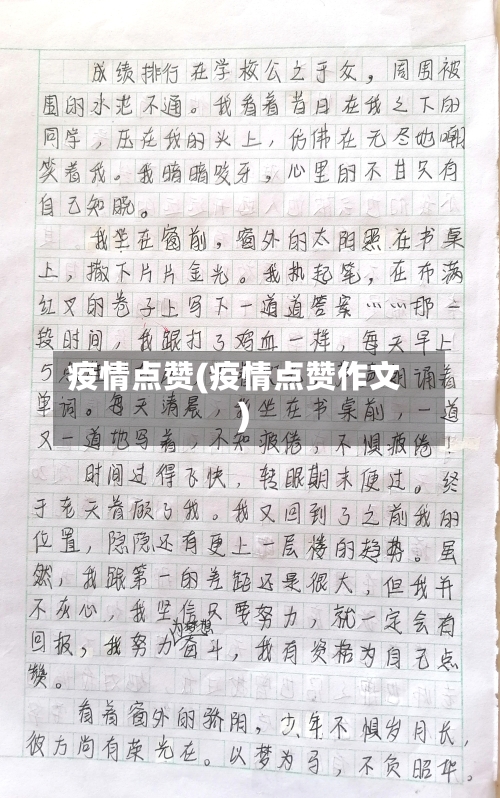 成绩排行在学校公之于众，周围被
围的水泄不通。我看着昔日在我之下的
同学，压在我的头上，仿佛在无尽地嘲
笑着我。我暗暗咬牙，心里的不甘只有
自己知晓。
我坐在窗前，窗外的太阳照在书桌
上，撒下片片金光。我执起笔，在布满
红叉的卷子上写下一道道答案……那一
段时间，我跟打了鸡血一样，每天早上
5
疫情点赞(疫情点赞作文
)
的诵着
单词。每天清晨，我坐在书桌前，一道
又一道地写着，不知疲倦，不惧疲倦！
时间过得飞快，转眼期末便过。终
于老天眷顾了我。我又回到了之前我的
位置，隐隐还有更上一层楼的趋势。虽
然，我跟第一的差距还是很大，但我并
不灰心，我坚信只要努力，就一定会有
为梦想
回报，我努力奋斗，我有资格为自己点
赞。
看着窗外的骄阳，少年不惧岁月长，
彼方尚有荣光在。以梦为马，不负韶华。